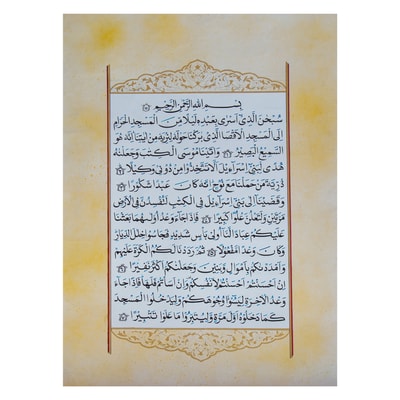 بِسْمِ اللهِ الرَّحْمنِ الرَّحِيمِ
سُبْحٰنَ الَّذِيْ اَسْرٰى بِعَبْدِهٖ لَيْلًا مِنَ الْمَسْجِدِ الْحَرَامِ
اِلَى الْمَسْجِدِ الْاَقْصَا الَّذِيْ بٰرَكْنَا حَوْلَهُ لِنُرِيَهُ مِنْ اٰيٰتِنَا اِنَّهُ هُوَ
السَّمِيْعُ الْبَصِيْرُ وَاٰتَيْنَا مُوْسَى الْكِتٰبَ وَجَعَلْنٰهُ
هُدًى لِبَنِيْ اِسْرَاءِيْلَ اَلَّا تَتَّخِذُوْا مِنْ دُوْنِيْ وَكِيْلًا
ذُرِّيَّةَ مَنْ حَمَلْنَا مَعَ نُوْحٍ اِنَّهُ كَانَ عَبْدًا شَكُوْرًا
وَقَضَيْنَا اِلٰى بَنِيْ اِسْرَاءِيْلَ فِي الْكِتٰبِ لَتُفْسِدُنَّ فِي الْاَرْضِ
مَرَّتَيْنِ وَلَتَعْلُنَّ عُلُوًّا كَبِيْرًا فَاِذَا جَاءَ وَعْدُ اُوْلٰهُمَا بَعَثْنَا
عَلَيْكُمْ عِبَادًا لَنَا اُولِيْ بَأْسٍ شَدِيْدٍ فَجَاسُوْا خِلٰلَ الدِّيَارِ
وَكَانَ وَعْدًا مَفْعُوْلًا ثُمَّ رَدَدْنَا لَكُمُ الْكَرَّةَ عَلَيْهِمْ
وَاَمْدَدْنٰكُمْ بِاَمْوَالٍ وَبَنِيْنَ وَجَعَلْنٰكُمْ اَكْثَرَ نَفِيْرًا
اِنْ اَحْسَنْتُمْ اَحْسَنْتُمْ لِاَنْفُسِكُمْ وَاِنْ اَسَأْتُمْ فَلَهَا فَاِذَا جَاءَ
وَعْدُ الْاٰخِرَةِ لِيَسُوْءٗا وُجُوْهَكُمْ وَلِيَدْخُلُوا الْمَسْجِدَ
كَمَا دَخَلُوْهُ اَوَّلَ مَرَّةٍ وَلِيُتَبِّرُوْا مَا عَلَوْا تَتْبِيْرًا